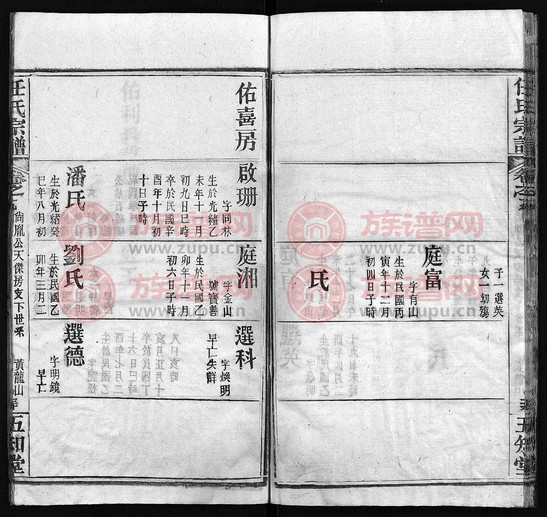 任氏宗譜
五知堂
子一選英
女一切殤
庭富
字有山
生於民國丙
寅年十二月
初四日子時
氏
佑喜房
啟珊
字同林
生於光緒乙
未年十一月
初九日巳時
卒於民國辛
酉年十月
十日子時
庭湘
字金山
號寶善
生於民國乙
卯年十一月
初六日子時
選科
字煥明
早亡失群
潘氏
生於光緒癸
巳年八月初
劉氏
生於民國乙
卯年三月二
選德
字明鏡
早亡
任氏宗譜
卷之
尚胤公天傑房支下世系
黃龍山
五知堂
族谱网
www.zupu.cn
族谱网
www.zupu.cn